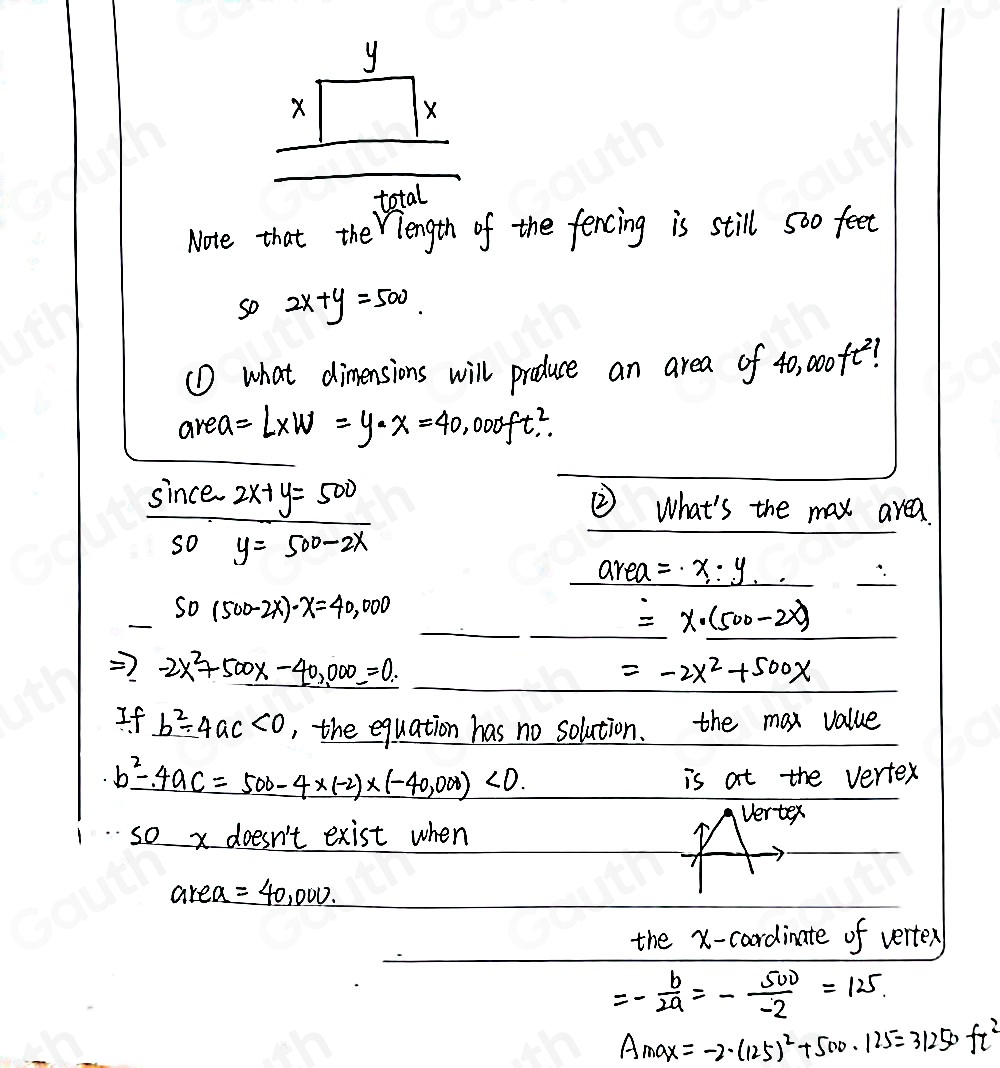 y
x x
total
Note that the length of the fencing is still 500 feet
so 2x+y=500.
① What dimensions will produce an area of 40,000ft²?
area=L×W = y·x=40,000ft².
since 2x+y= 500
so y= 500-2x
so (500-2x)·x=40,000
=> -2x²+500x-40,000=0.
If b²-4ac<0, the equation has no solution.
b²-4ac= 500-4×(-2)×(-40,000) <0.
so x doesn't exist when
area=40,000.
② What's the max area.
area=x·y
= x·(500-2x)
= -2x²+500x
the max value
is at the vertex
Vertex
the x-coordinate of vertex
=-b/2a = -500/-2 = 125.
Amax=-2·(125)²+500·125=31250 ft²
Gauth